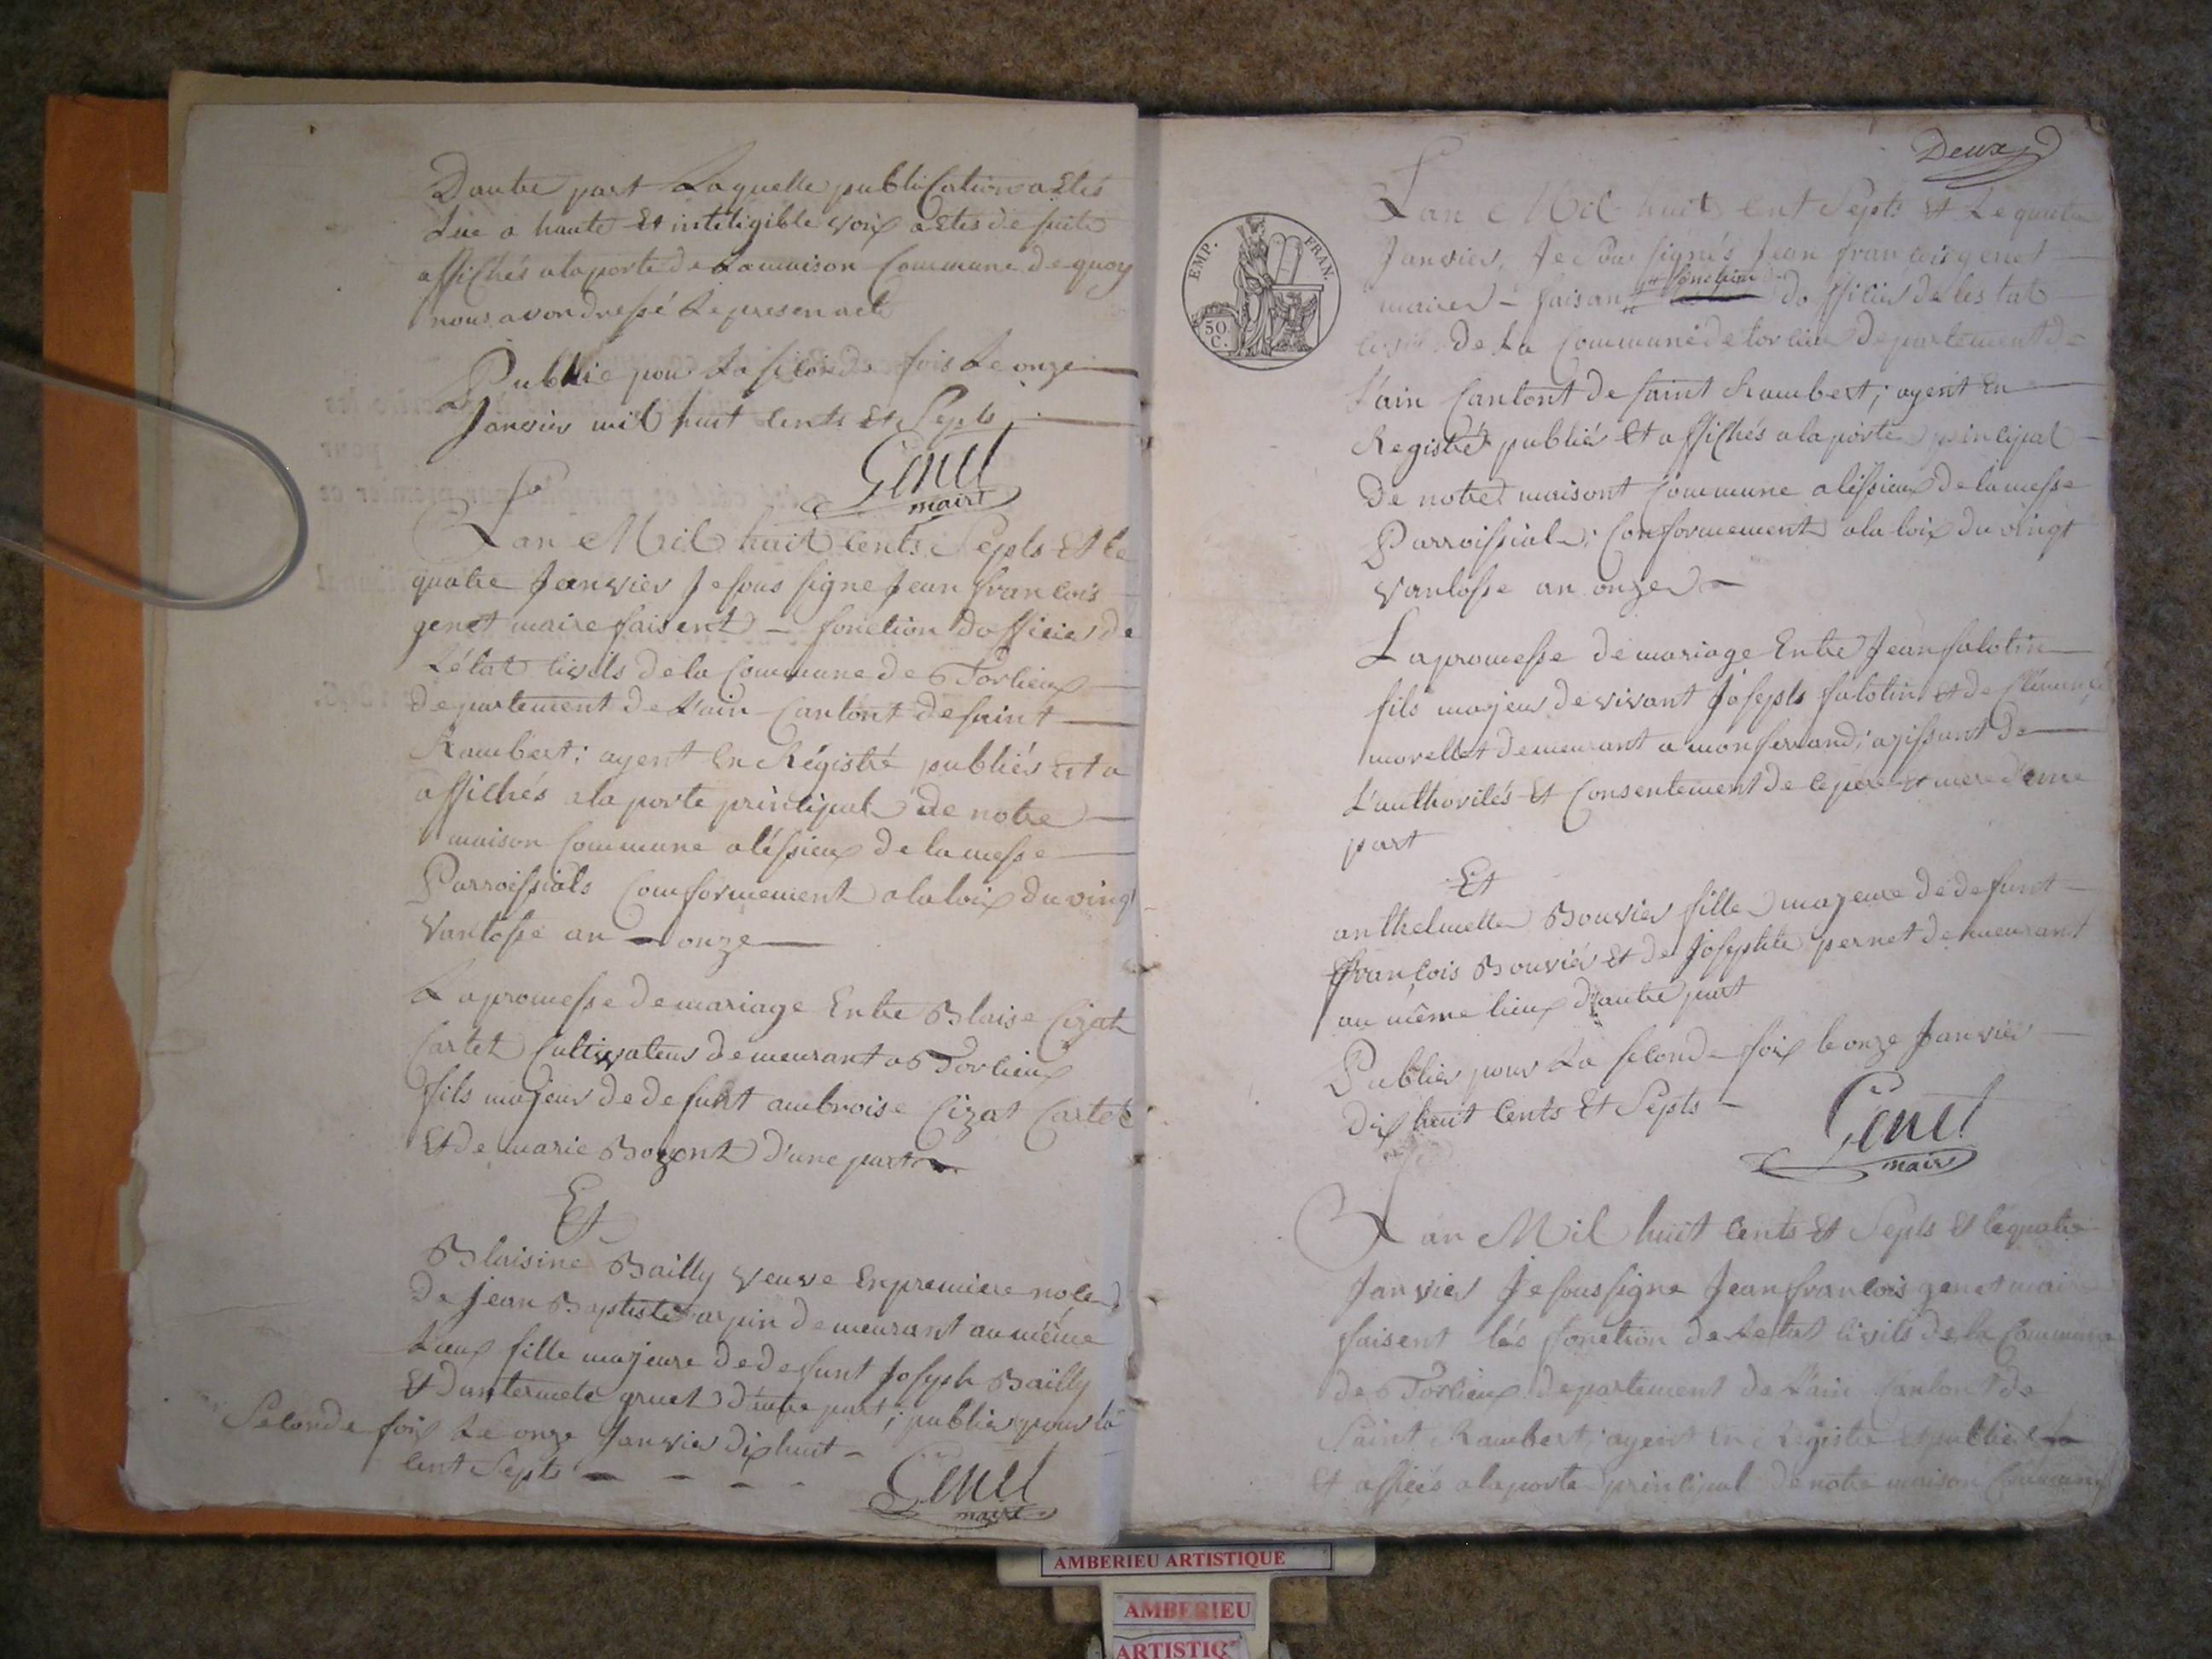 Dautre part Laquelle publication a Etés
Lue a haute Et inteligible voix a Etes de suite
affichés a la porte de La maison Commune de quoy
nous avon dressé Le presen acte
Publié pour La seconde fois Le onze
Janvier mil huit Cents Et Septs
Genet
maire
Lan Mil huit Cents Septs Et le
quatre Jeanvier Je sous signe Jean francois
genet maire faisent fonction dofficier de
L'état Civils de la Commune de Torlieux
departement de L'ain Cantont de saint
Rambert; ayent En Régistré publiés Et a
affichés a la porte principal de notre
maison Commune a l'issieux de la messe
Parroissials Comformement a la loix du vingt
Vantosse an onze
La promesse de mariage Entre Blaise Cizat
Cartet Cultivateur demeurant a Torlieux
fils majeur de defunt ambroise Cizat Cartet
Et de marie Bozont d'une part
Et
Blaisine Bailly veuve En premiere noce
de Jean Baptiste arpin demeurant au même
Lieux fille majeure de defunt Joseph Bailly
Et dantermete gruet d'autre part; publier pour la
Seconde foix Le onze Janvier dix huit
Cent Septs
Genet
maire
Deux
Lan Mil huit Cent Septs Et Le quatre
Janvier, Je Sous signés Jean francois genet
maire faisan fonction dofficier de les tat
Civil de La Commune de torlieux departement de
L'ain Cantont de saint Rambert; ayent En
Registré publiér Et affichés a la porte principal
De notre maisont Commune a l'issieux de la messe
Parroissiale; Conformement a la loix du vingt
Vantosse an onze
La promesse de mariage Entre Jean falotin
fils majeur de vivant Josepts falotin et de Clémence
morellet demeurant a monferrand; agissant De
L'authorités Et Consentement de ce pere et mere d'une
part
Et
anthelmette Bouvier fille majeure de defunt
françois Bouviér Et de Josephte pernet demeurant
au même lieux d'autre part
Publier pour La seconde foix le onze Janvier
Dix huit Cents Et Septs
Genet
maire
Lan Mil huit Cents Et Septs Et le quatre
Janvier Je sous signe Jean francois genet maire
faisent lés fonction de Letat Civils de la Commune
de Torlieux departement de L'ain Cantont de
Saint Rambert; ayent En Registre Et publié
Et affiés a la porte principal de notre maison Commune
EMP. FRAN.
50. C.
AMBERIEU ARTISTIQUE
AMBERIEU
ARTISTIQ